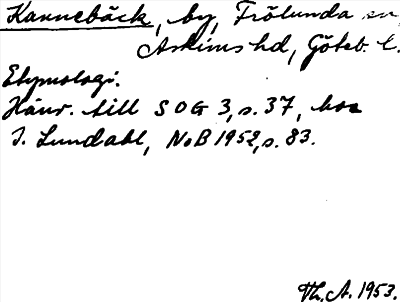 Kannebäck, by, Frölunda sn,
Askims hd, Göteb. l.
Etymologi.
Hänv. till SOG 3, s. 37, hos
I. Lundahl, NoB 1952, s. 83.
Th. A. 1953.